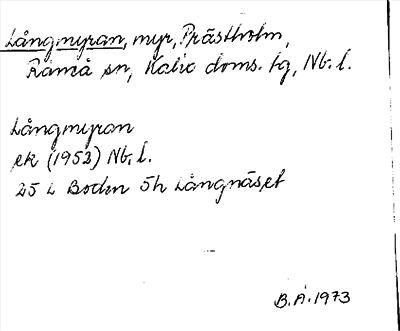 Långmyran, myr, Prästholm,
Råneå sn, Kalix doms. tg, Nb. l.
Långmyran
ek (1952) Nb. l.
25 L Boden 5h Långnäset
B.Å. 1973